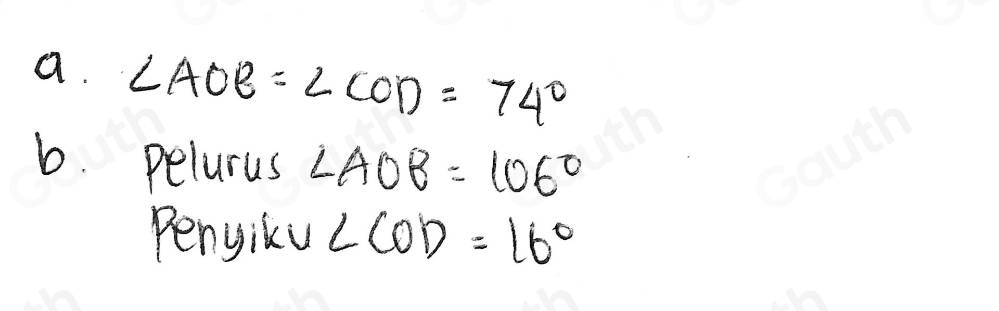 a. ∠AOB = ∠COD = 74°
b. Pelurus ∠AOB = 106°
Penyiku ∠COD = 16°